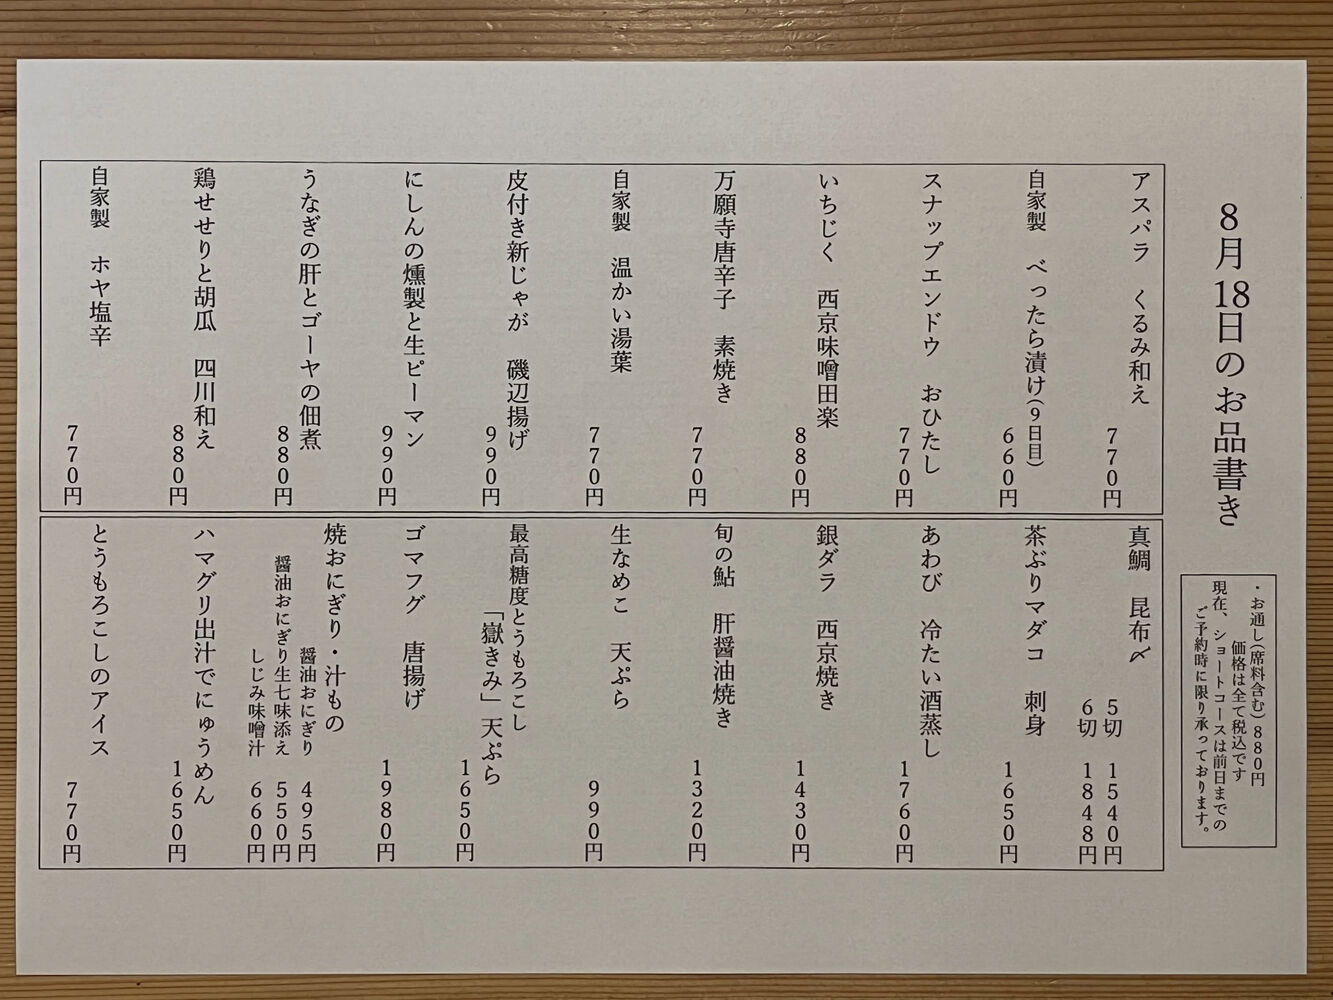 8月18日のお品書き
・お通し(席料含む)880円
価格は全て税込です
現在、ショートコースは前日までの
ご予約時に限り承っております。
アスパラ くるみ和え
770円
自家製 べったら漬け(9日目)
660円
スナップエンドウ おひたし
770円
いちじく 西京味噌田楽
880円
万願寺唐辛子 素焼き
770円
自家製 温かい湯葉
770円
皮付き新じゃが 磯辺揚げ
990円
にしんの燻製と生ピーマン
990円
うなぎの肝とゴーヤの佃煮
880円
鶏せせりと胡瓜 四川和え
880円
自家製 ホヤ塩辛
770円
真鯛 昆布〆
5切 1540円
6切 1848円
茶ぶりマダコ 刺身
1650円
あわび 冷たい酒蒸し
1760円
銀ダラ 西京焼き
1430円
旬の鮎 肝醤油焼き
1320円
生なめこ 天ぷら
990円
最高糖度とうもろこし
「嶽きみ」天ぷら
1650円
ゴマフグ 唐揚げ
1980円
焼おにぎり・汁もの
醤油おにぎり 495円
醤油おにぎり生七味添え 550円
しじみ味噌汁 660円
ハマグリ出汁でにゅうめん
1650円
とうもろこしのアイス
770円